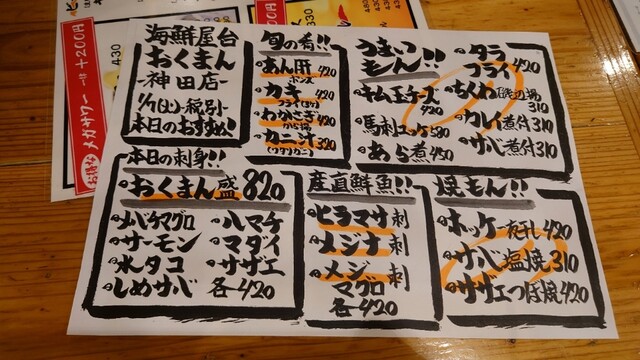 海鮮屋台
おくまん
-神田店-
1/7(火)税別
本日のおすすめ!
旬の肴!!
あん肝 420
ポン酢
カキ 420
フライ(2ヶ)
わかさぎ 420
から揚
カニ汁 320
(ワタリガニ)
うまい
もん!!
キムチーズ
420
馬刺ユッケ 580
あら煮 450
タラ
フライ 420
ちくわ磯辺揚
310
カレイ煮付 310
サバ煮付 310
本日の刺身!!
おくまん盛 820
メバチマグロ
サーモン
水タコ
しめサバ
ハマチ
マダイ
サザエ
各420
産直鮮魚!!
ヒラマサ刺
メジナ刺
メジマグロ刺
各420
焼もん!!
ホッケ一夜干し 420
サバ塩焼 310
サザエつぼ焼 420
お得な
メガサワー
+200円
430
330